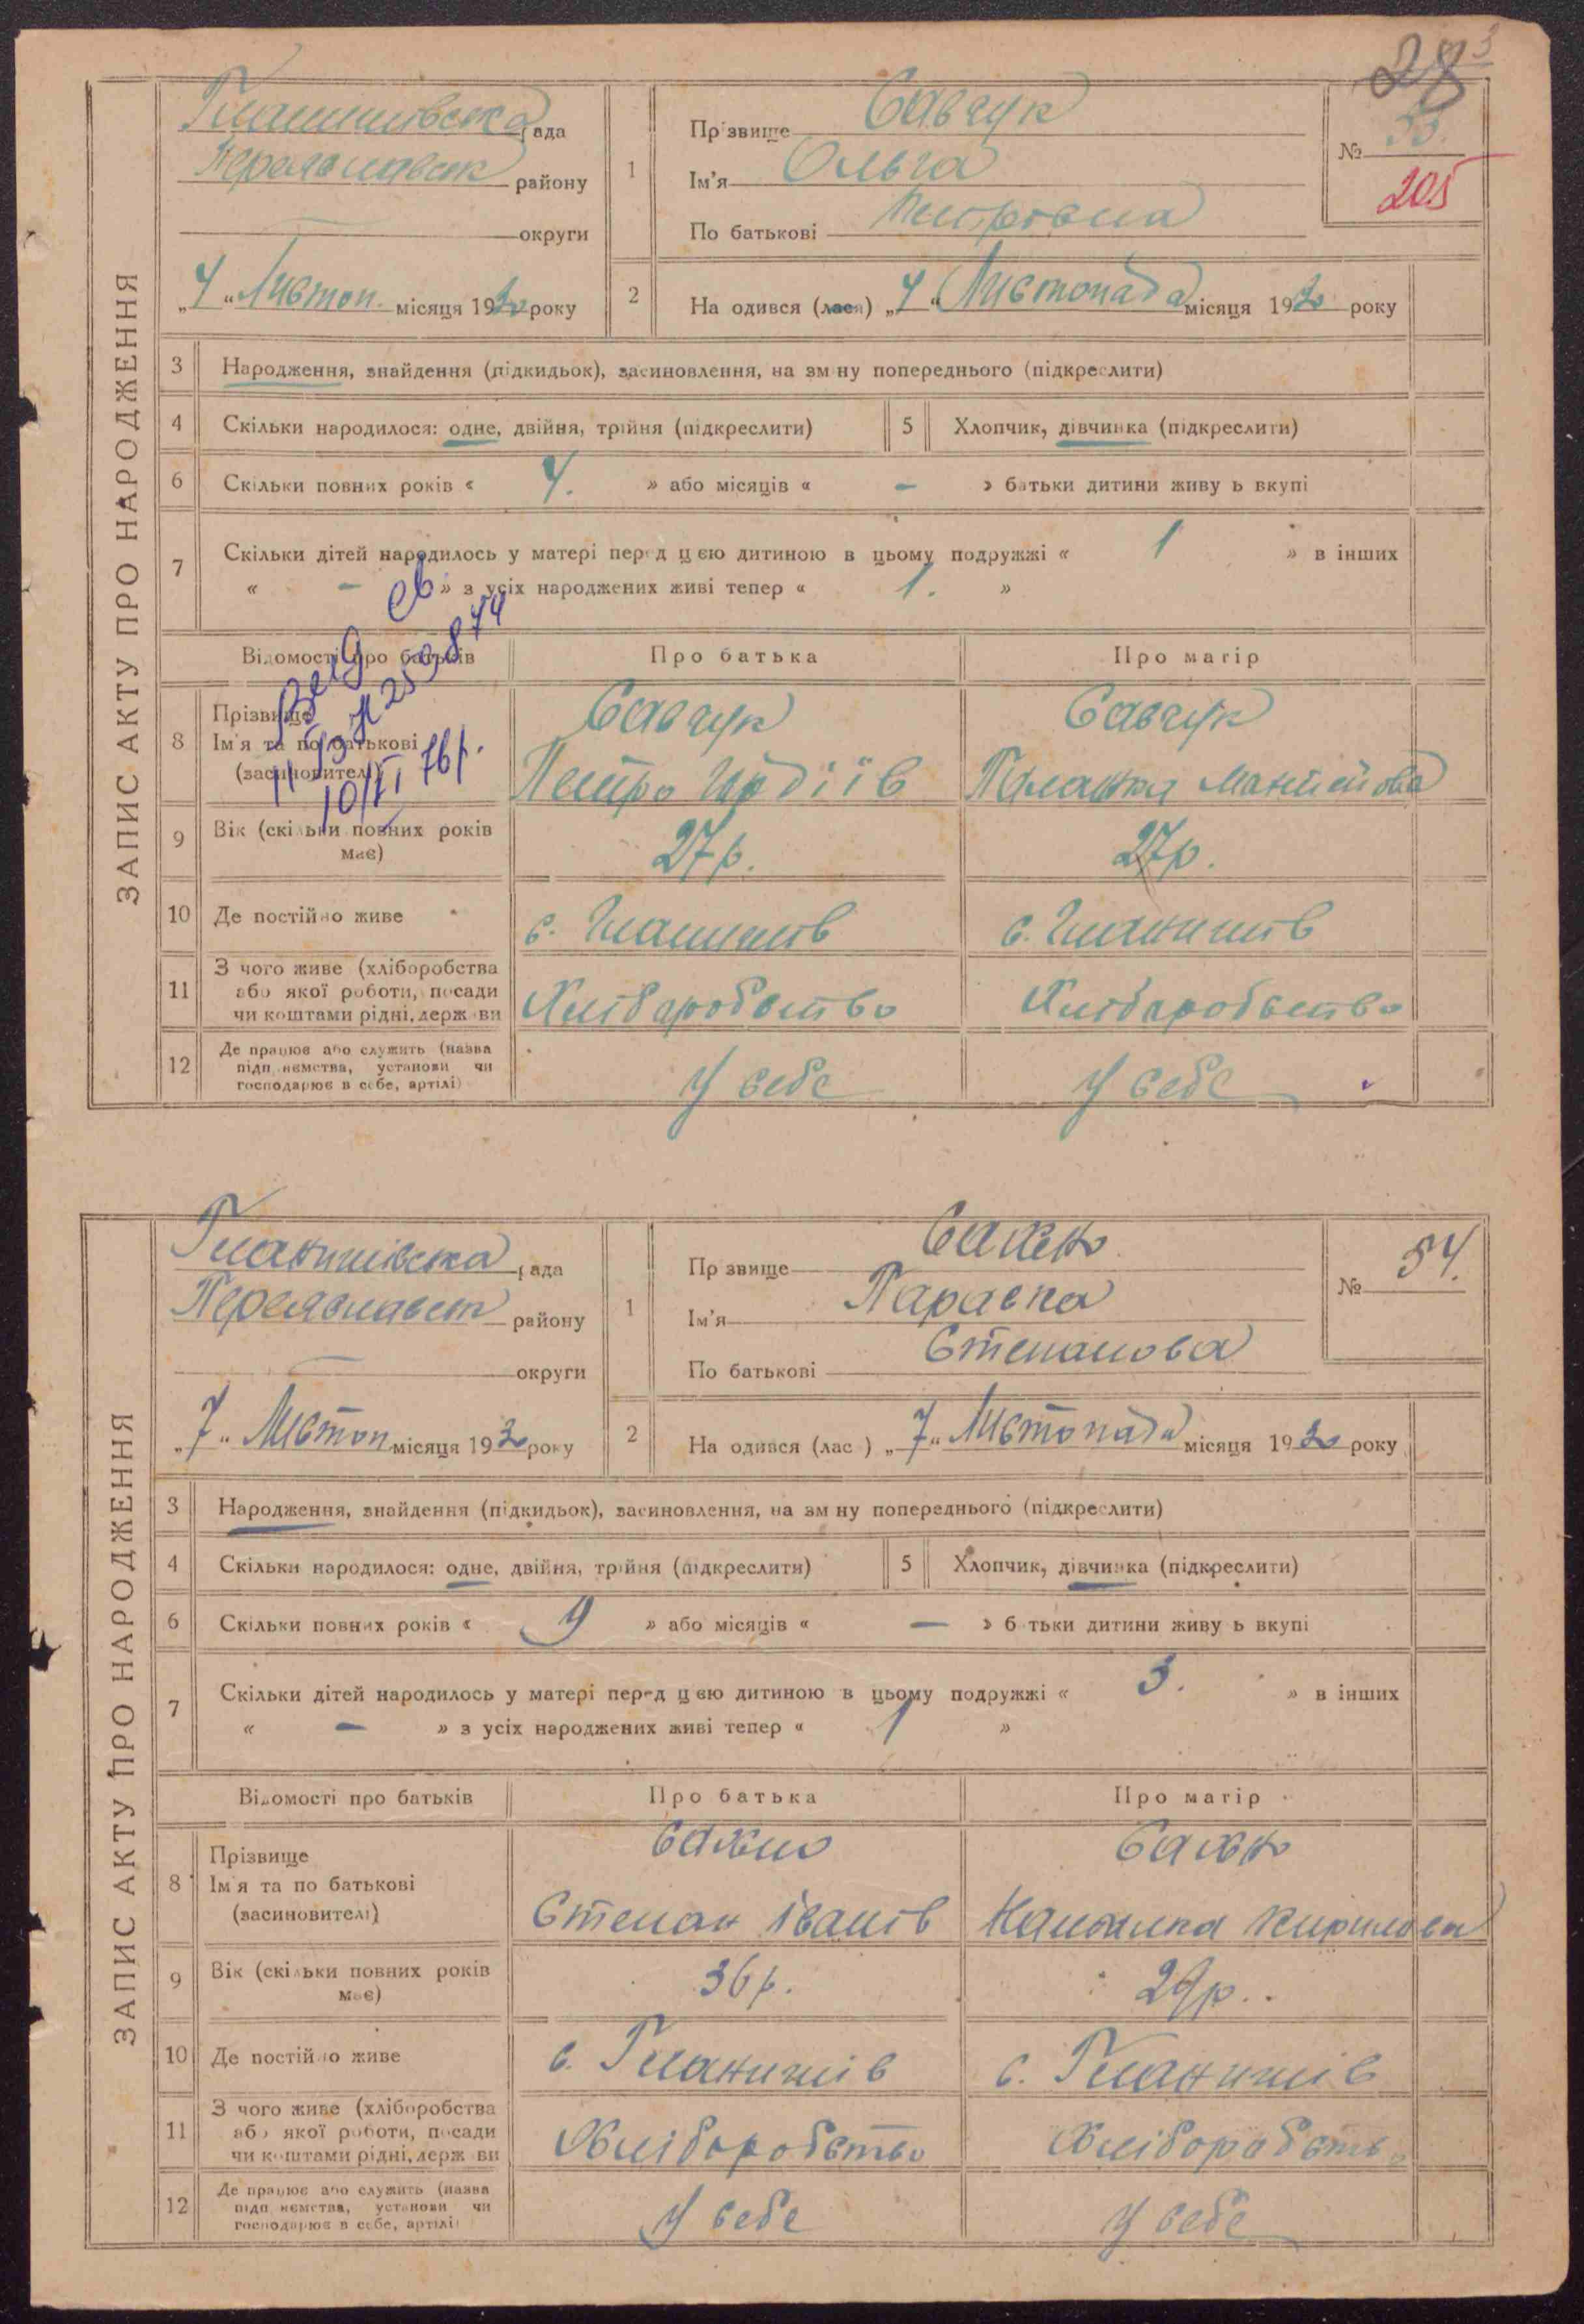 28
ЗАПИС АКТУ ПРО НАРОДЖЕННЯ
рада
району
округи
„4“ Листоп. місяця 1930 року
1
Прізвище Савчук
Ім'я Ольга
По батькові Петровна
№ 53.
205
2
На одився (лася) „4“ Листопада місяця 1930 року
3 Народження, знайдення (підкидьок), засиновлення, на зм ну попереднього (підкреслити)
4 Скільки народилося: одне, двійня, трійня (підкреслити)
5 Хлопчик, дівчинка (підкреслити)
6 Скільки повних років « 4. » або місяців « – » батьки дитини живу ь вкупі
7 Скільки дітей народилось у матері перед цією дитиною в цьому подружжі « 1 » в інших
« – » з усіх народжених живі тепер « 1. »
Відомості про батьків Про батька Про матір
8 Прізвище
Ім'я та по батькові
(засиновителі)
Савчук
Петро
Савчук
10/VI 76р.
9 Вік (скільки повних років має) 27р. 27р.
10 Де постійно живе с. Гланишів с. Гланишів
11 З чого живе (хліборобства
або якої роботи, посади
чи коштами рідні, держ ви
Хліборобство Хліборобство
12 Де працює або служить (назва
підп иємства, установи чи
господарює в себе, артілі)
У себе У себе
ЗАПИС АКТУ ПРО НАРОДЖЕННЯ
Гланишівска рада
району
округи
„7“ Листоп місяця 1930 року
1
Пр звище Сажко
Ім'я Параска
По батькові Степанова
№ 54.
2
На одився (лас ) „7“ Листопада місяця 1930 року
3 Народження, знайдення (підкидьок), засиновлення, на зм ну попереднього (підкреслити)
4 Скільки народилося: одне, двійня, трійня (підкреслити)
5 Хлопчик, дівчинка (підкреслити)
6 Скільки повних років « 9 » або місяців « — » б тьки дитини живу ь вкупі
7 Скільки дітей народилось у матері перед цією дитиною в цьому подружжі « 3. » в інших
« – » з усіх народжених живі тепер « 1 »
Відомості про батьків Про батька Про матір
8 Прізвище
Ім'я та по батькові
(засиновителі)
Сажко
Степан Іванів
Сажко
Кирилова
9 Вік (скільки повних років має) 36р. 29р.
10 Де постійно живе с. Гланишів с. Гланишів
11 З чого живе (хліборобства
або якої роботи, посади
чи коштами рідні, держ ви
Хліборобство Хліборобство
12 Де працює або служить (назва
підп иємства, установи чи
господарює в себе, артілі)
У себе У себе